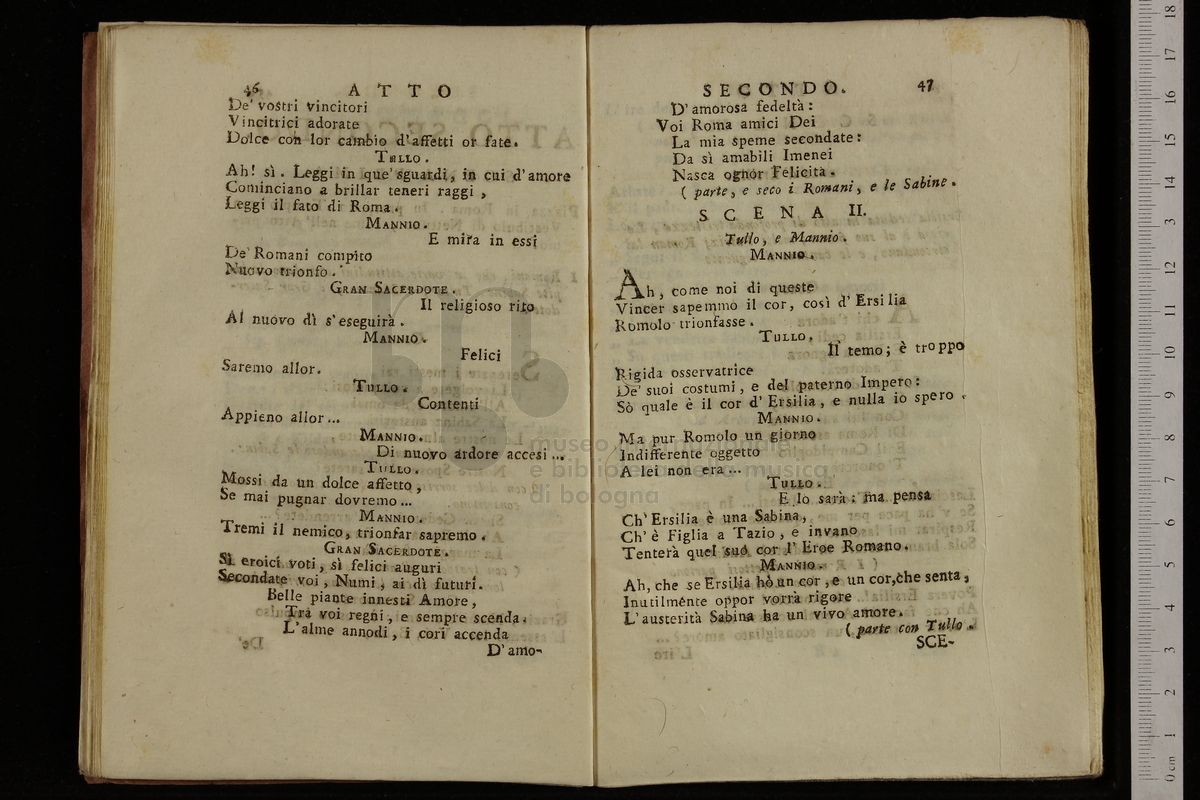 46 ATTO
De' vostri vincitori
Vincitrici adorate
Dolce con lor cambio d'affetti or fate.
TULLO.
Ah! sì. Leggi in que' sguardi, in cui d'amore
Cominciano a brillar teneri raggi,
Leggi il fato di Roma.
MANNIO.
E mira in essi
De' Romani compito
Nuovo trionfo.
GRAN SACERDOTE.
Il religioso rito
Al nuovo dì s'eseguirà.
MANNIO.
Felici
Saremo allor.
TULLO.
Contenti
Appieno allor...
MANNIO.
Di nuovo ardore accesi...
TULLO.
Mossi da un dolce affetto,
Se mai pugnar dovremo...
MANNIO.
Tremi il nemico, trionfar sapremo.
GRAN SACERDOTE.
Sì eroici voti, sì felici auguri
Secondate voi, Numi, ai dì futuri.
Belle piante innesti Amore,
Tra voi regni, e sempre scenda.
L'alme annodi, i cori accenda
D'amo-
SECONDO. 47
D'amorosa fedeltà:
Voi Roma amici Dei
La mia speme secondate:
Da sì amabili Imenei
Nasca ognor Felicità.
(parte, e seco i Romani, e le Sabine.
SCENA II.
Tullo, e Mannio.
MANNIO.
Ah, come noi di queste
Vincer sapemmo il cor, così d'Ersilia
Romolo trionfasse.
TULLO.
Il temo; è troppo
Rigida osservatrice
De' suoi costumi, e del paterno Impero:
Sò quale è il cor d'Ersilia, e nulla io spero.
MANNIO.
Ma pur Romolo un giorno
Indifferente oggetto
A lei non era...
TULLO.
E lo sarà: ma pensa
Ch'Ersilia è una Sabina,
Ch'è Figlia a Tazio, e invano
Tenterà quel suo cor l'Eroe Romano.
MANNIO.
Ah, che se Ersilia hò un cor, e un cor, che senta,
Inutilmente oppor vorrà rigore
L'austerità Sabina ha un vivo amore.
(parte con Tullo.
SCE-
museo internazionale
e biblioteca della musica
di bologna
0 cm 1 2 3 4 5 6 7 8 9 10 11 12 13 14 15 16 17 18